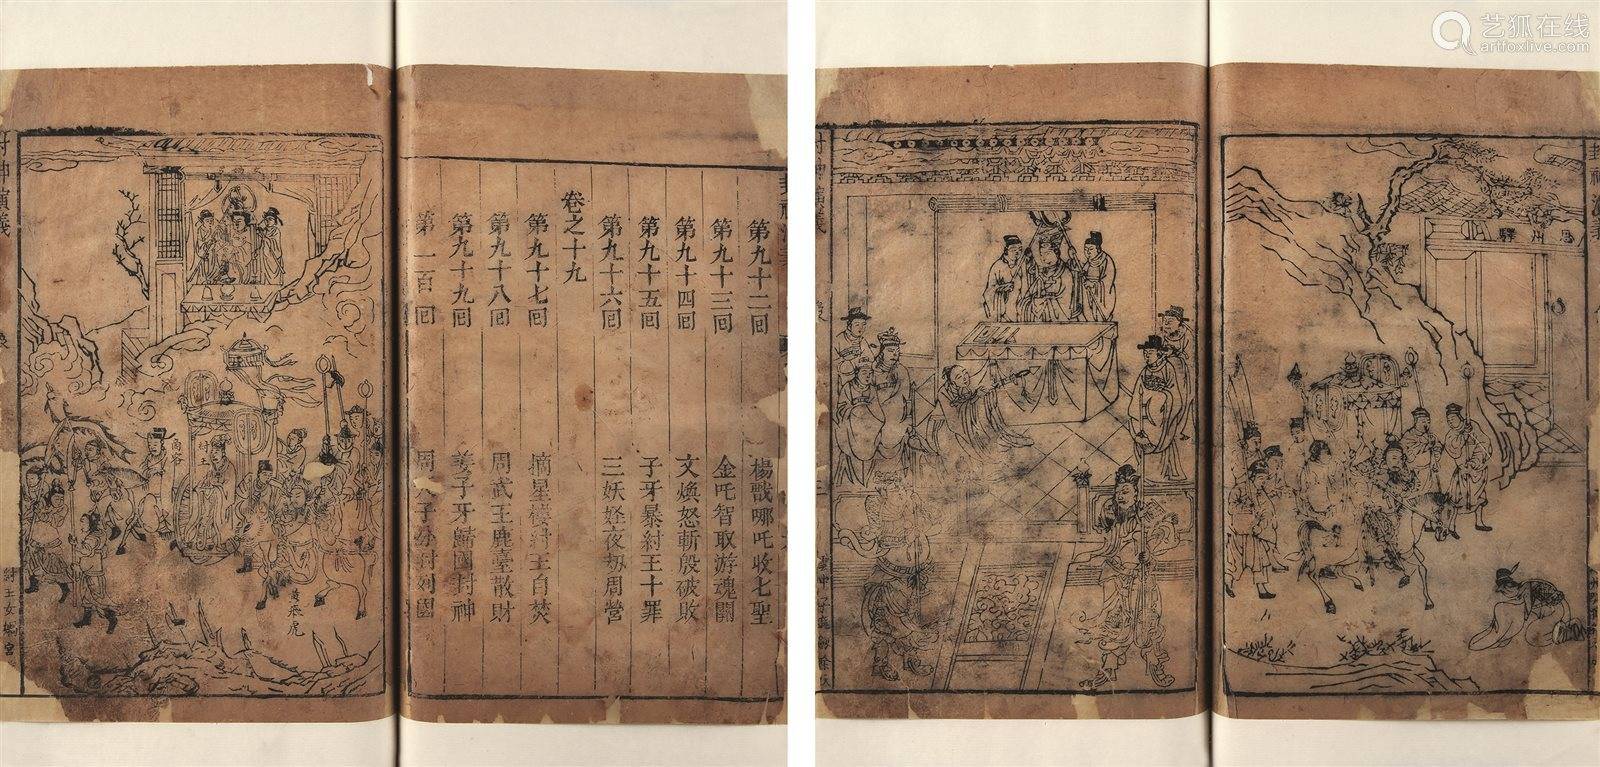 艺狐在线
artfoxlive.com
第九十二回 楊戩哪吒收七聖
第九十三回 金吒智取游魂關
第九十四回 文煥怒斬殷破敗
第九十五回 子牙暴紂王十罪
第九十六回 三妖夜刼周營
卷之十九
第九十七回 摘星樓紂王自焚
第九十八回 周武王鹿臺散財
第九十九回 姜子牙歸國封神
第一百回 周天子分封列國
封神演義
商容
紂王
黃飛虎
紂王女媧宮
封神演義
恩州驛
封神演義